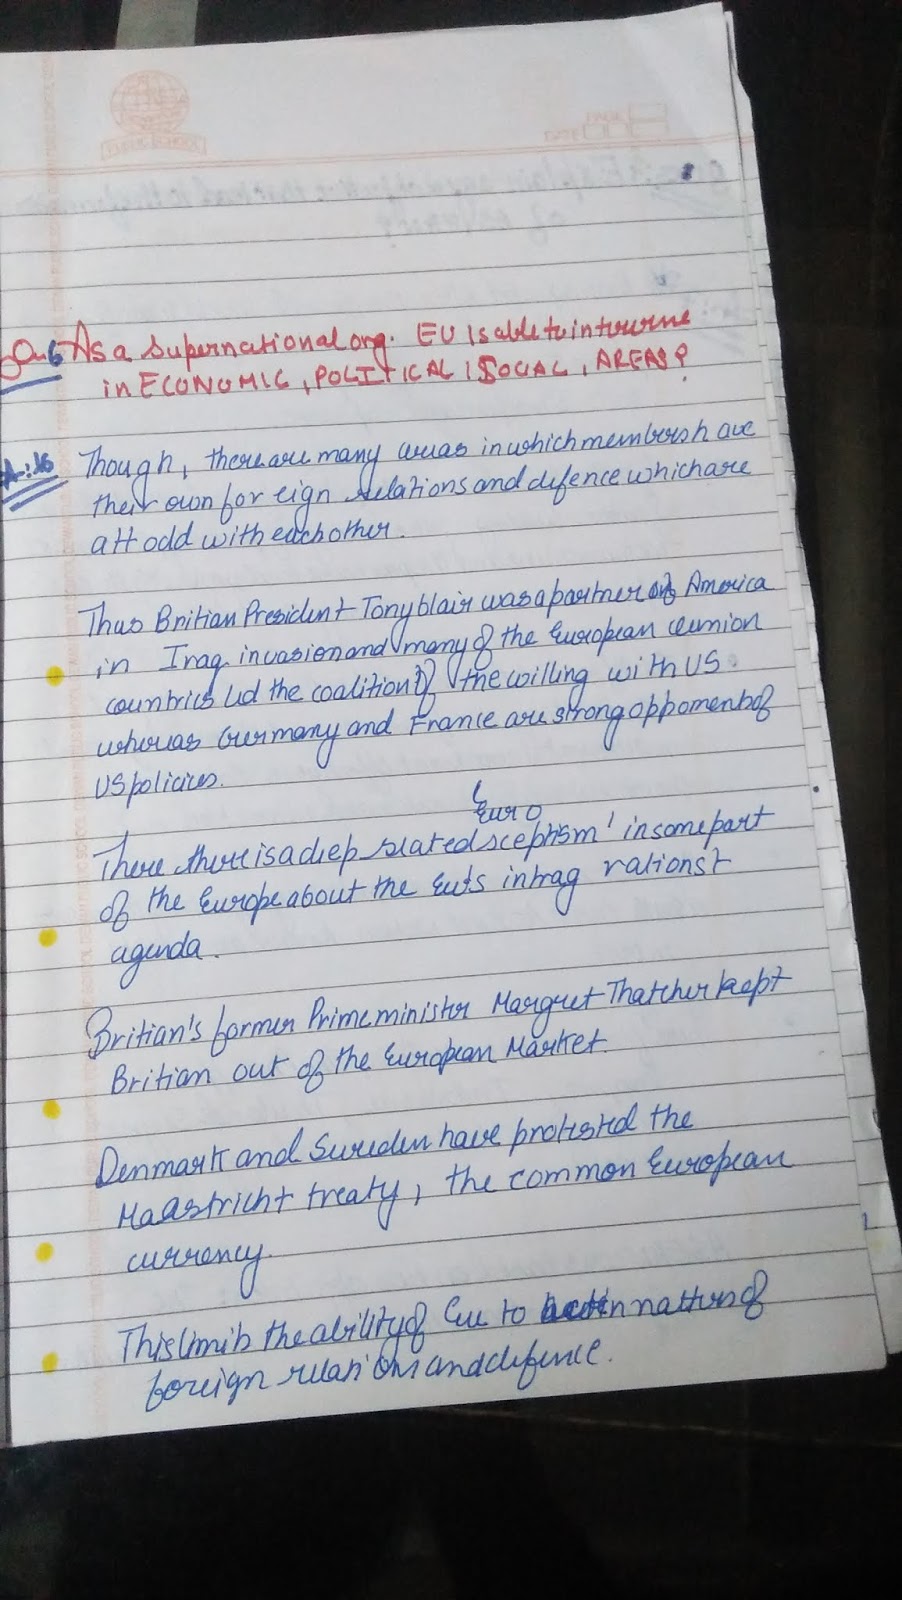 PUBLIC SCHOOL
PAGE
DATE
Q.6 As a Supernational org. EU Is able to intervene
in ECONOMIC, POLITICAL, SOCIAL, AREAS?
A:16 Though, there are many areas in which members have
their own foreign relations and defence which are
att odd with each other.
Thus Britian President Tony blair was a partner of America
in Iraq invasion and many of the European union
countries led the coalition of the willing with US.
whereas Germany and France are strong oppoment of
US policies.
'Euro
There there is a deep seated sceptism' in some part
of the Europe about the Eu's intrag rationst
agenda.
Britian's former Prime minister Margret Thatcher kept
Britian out of the European Market.
Denmark and Sweden have protested the
Maastricht treaty, the common European
currency.
This limits the ability of Eu to in matters of
foreign relations and defence.